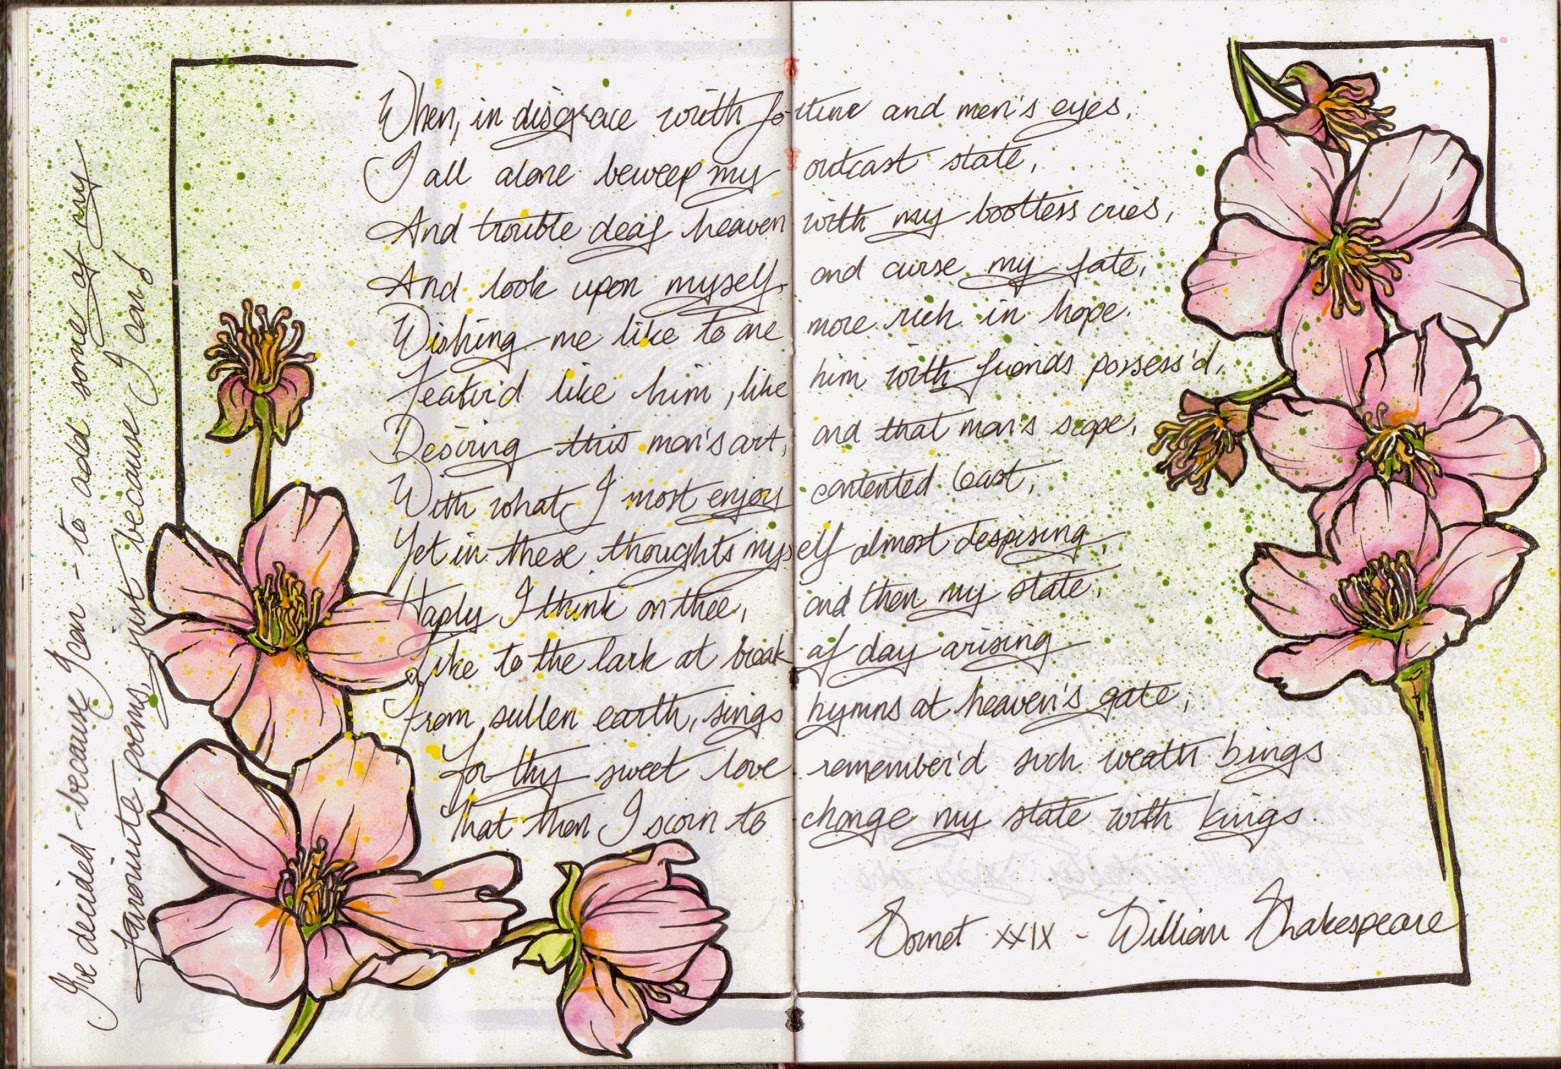 When, in disgrace with fortune and men's eyes,
I all alone beweep my outcast state,
And trouble deaf heaven with my bootless cries,
And look upon myself and curse my fate,
Wishing me like to one more rich in hope.
Featur'd like him, like him with friends possess'd,
Desiring this man's art, and that man's scope,
With what I most enjoy contented least,
Yet in these thoughts myself almost despising,
Haply I think on thee, and then my state,
Like to the lark at break of day arising
From sullen earth, sings hymns at heaven's gate;
For thy sweet love remember'd such wealth brings
That then I scorn to change my state with kings.
Sonnet XXIX - William Shakespeare
I've decided - because I can - to add some of my
favourite poems just because I can